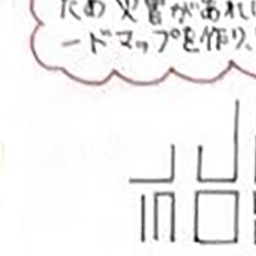 ため災害があれば
ードマップを作り、